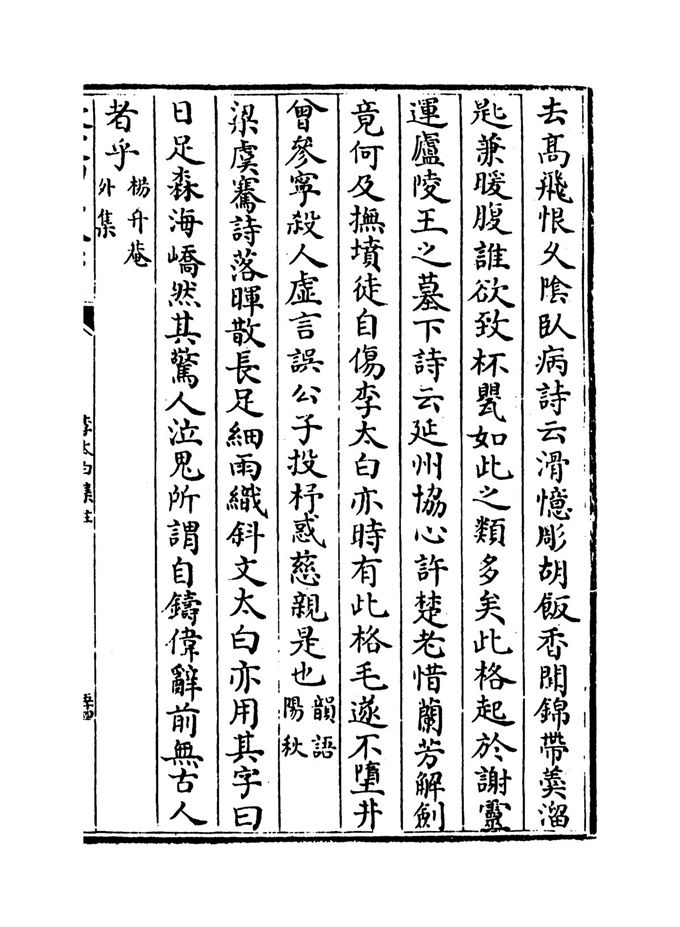 去高飛恨久陰臥病詩云滑憶彫胡飯香聞錦帶羮溜
匙兼暖腹誰欲致杯甖如此之類多矣此格起於謝靈
運廬陵王之墓下詩云延州協心許楚老惜蘭芳解劍
竟何及撫墳徒自傷李太白亦時有此格毛遂不墮井
曾參寧殺人虛言誤公子投杼惑慈親是也韻語
陽秋
梁虞騫詩落暉散長足細雨織斜文太白亦用其字曰
日足森海嶠然其驚人泣鬼所謂自鑄偉辭前無古人
者乎楊升菴
外集
李太白集注